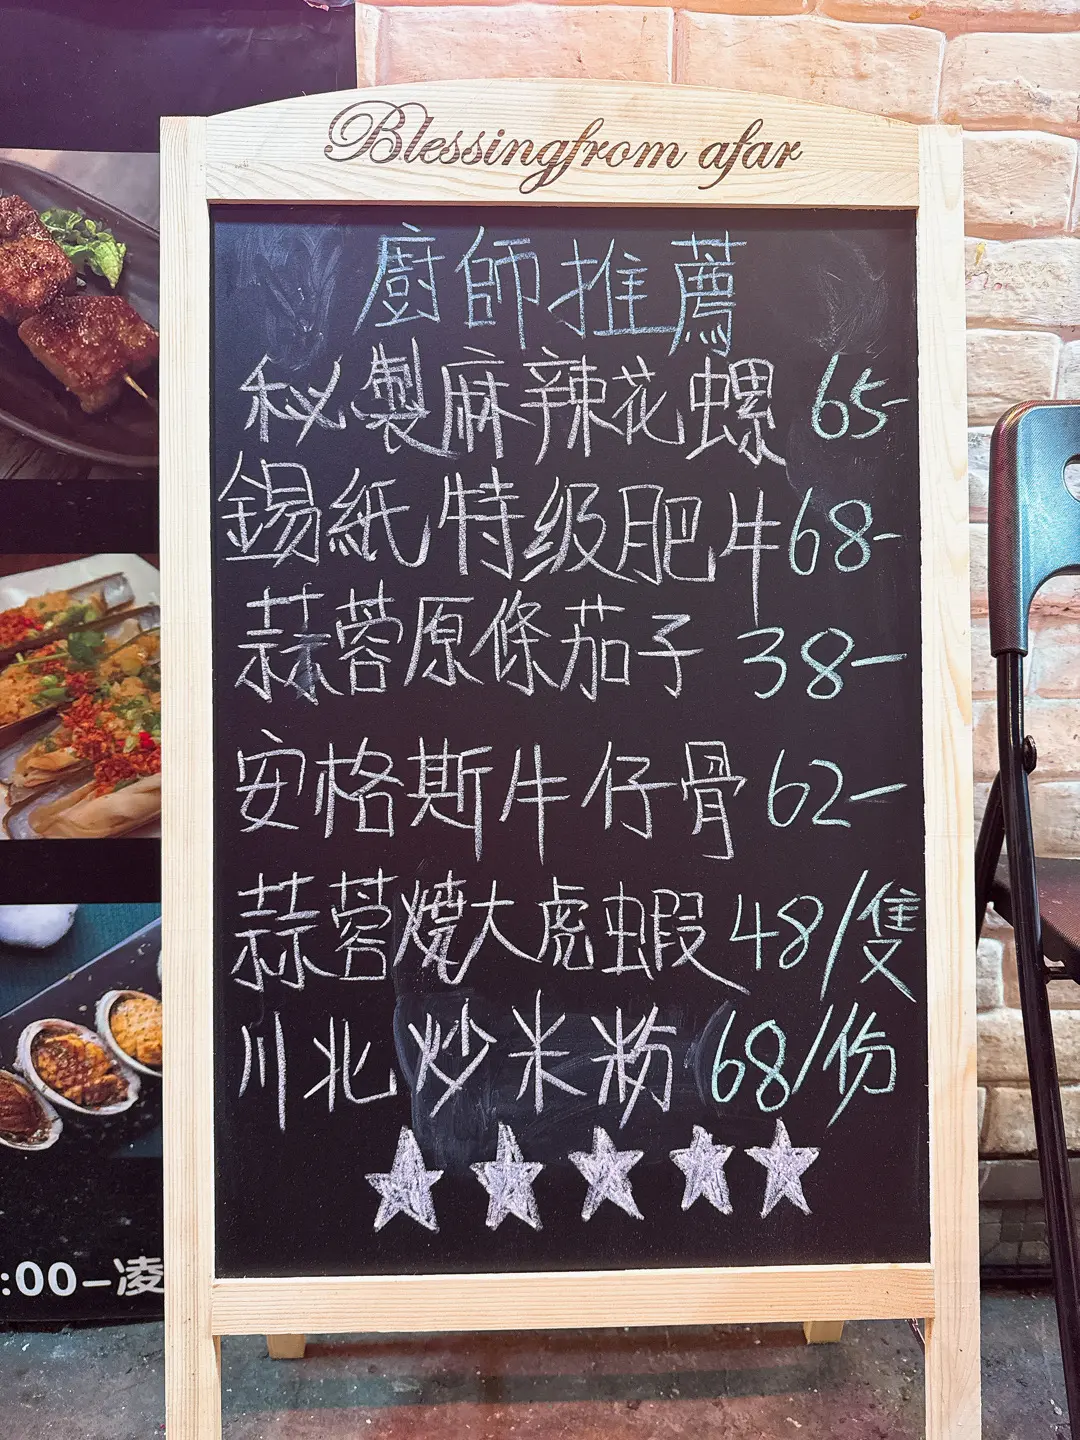 Blessingfrom afar
廚師推薦
秘製麻辣花螺 65-
錫紙特级肥牛 68-
蒜蓉原條茄子 38-
安格斯牛仔骨 62-
蒜蓉燒大虎蝦 48/隻
川北炒米粉 68/份
:00-凌